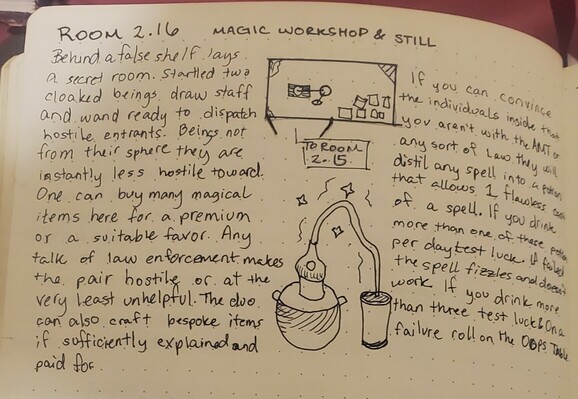 ROOM 2.16 MAGIC WORKSHOP & STILL
Behind a false shelf lays
a secret room. Startled two
cloaked beings draw staff
and wand ready to dispatch
hostile entrants. Beings not
from their sphere they are
instantly less hostile toward.
One can buy many magical
items here for a premium
or a suitable favor. Any
talk of law enforcement makes
the pair hostile or at the
very least unhelpful. The duo
can also craft bespoke items
if sufficiently explained and
paid for.
TO ROOM
2.15
If you can convince
the individuals inside that
you aren't with the AMT or
any sort of law, they will
distil any spell into a potion
that allows 1 flawless cast
of a spell. If you drink
more than one of these potions
per day test luck. If failed
the spell fizzles and doesn't
work. If you drink more
than three test luck & On a
failure roll on the OOPS Table